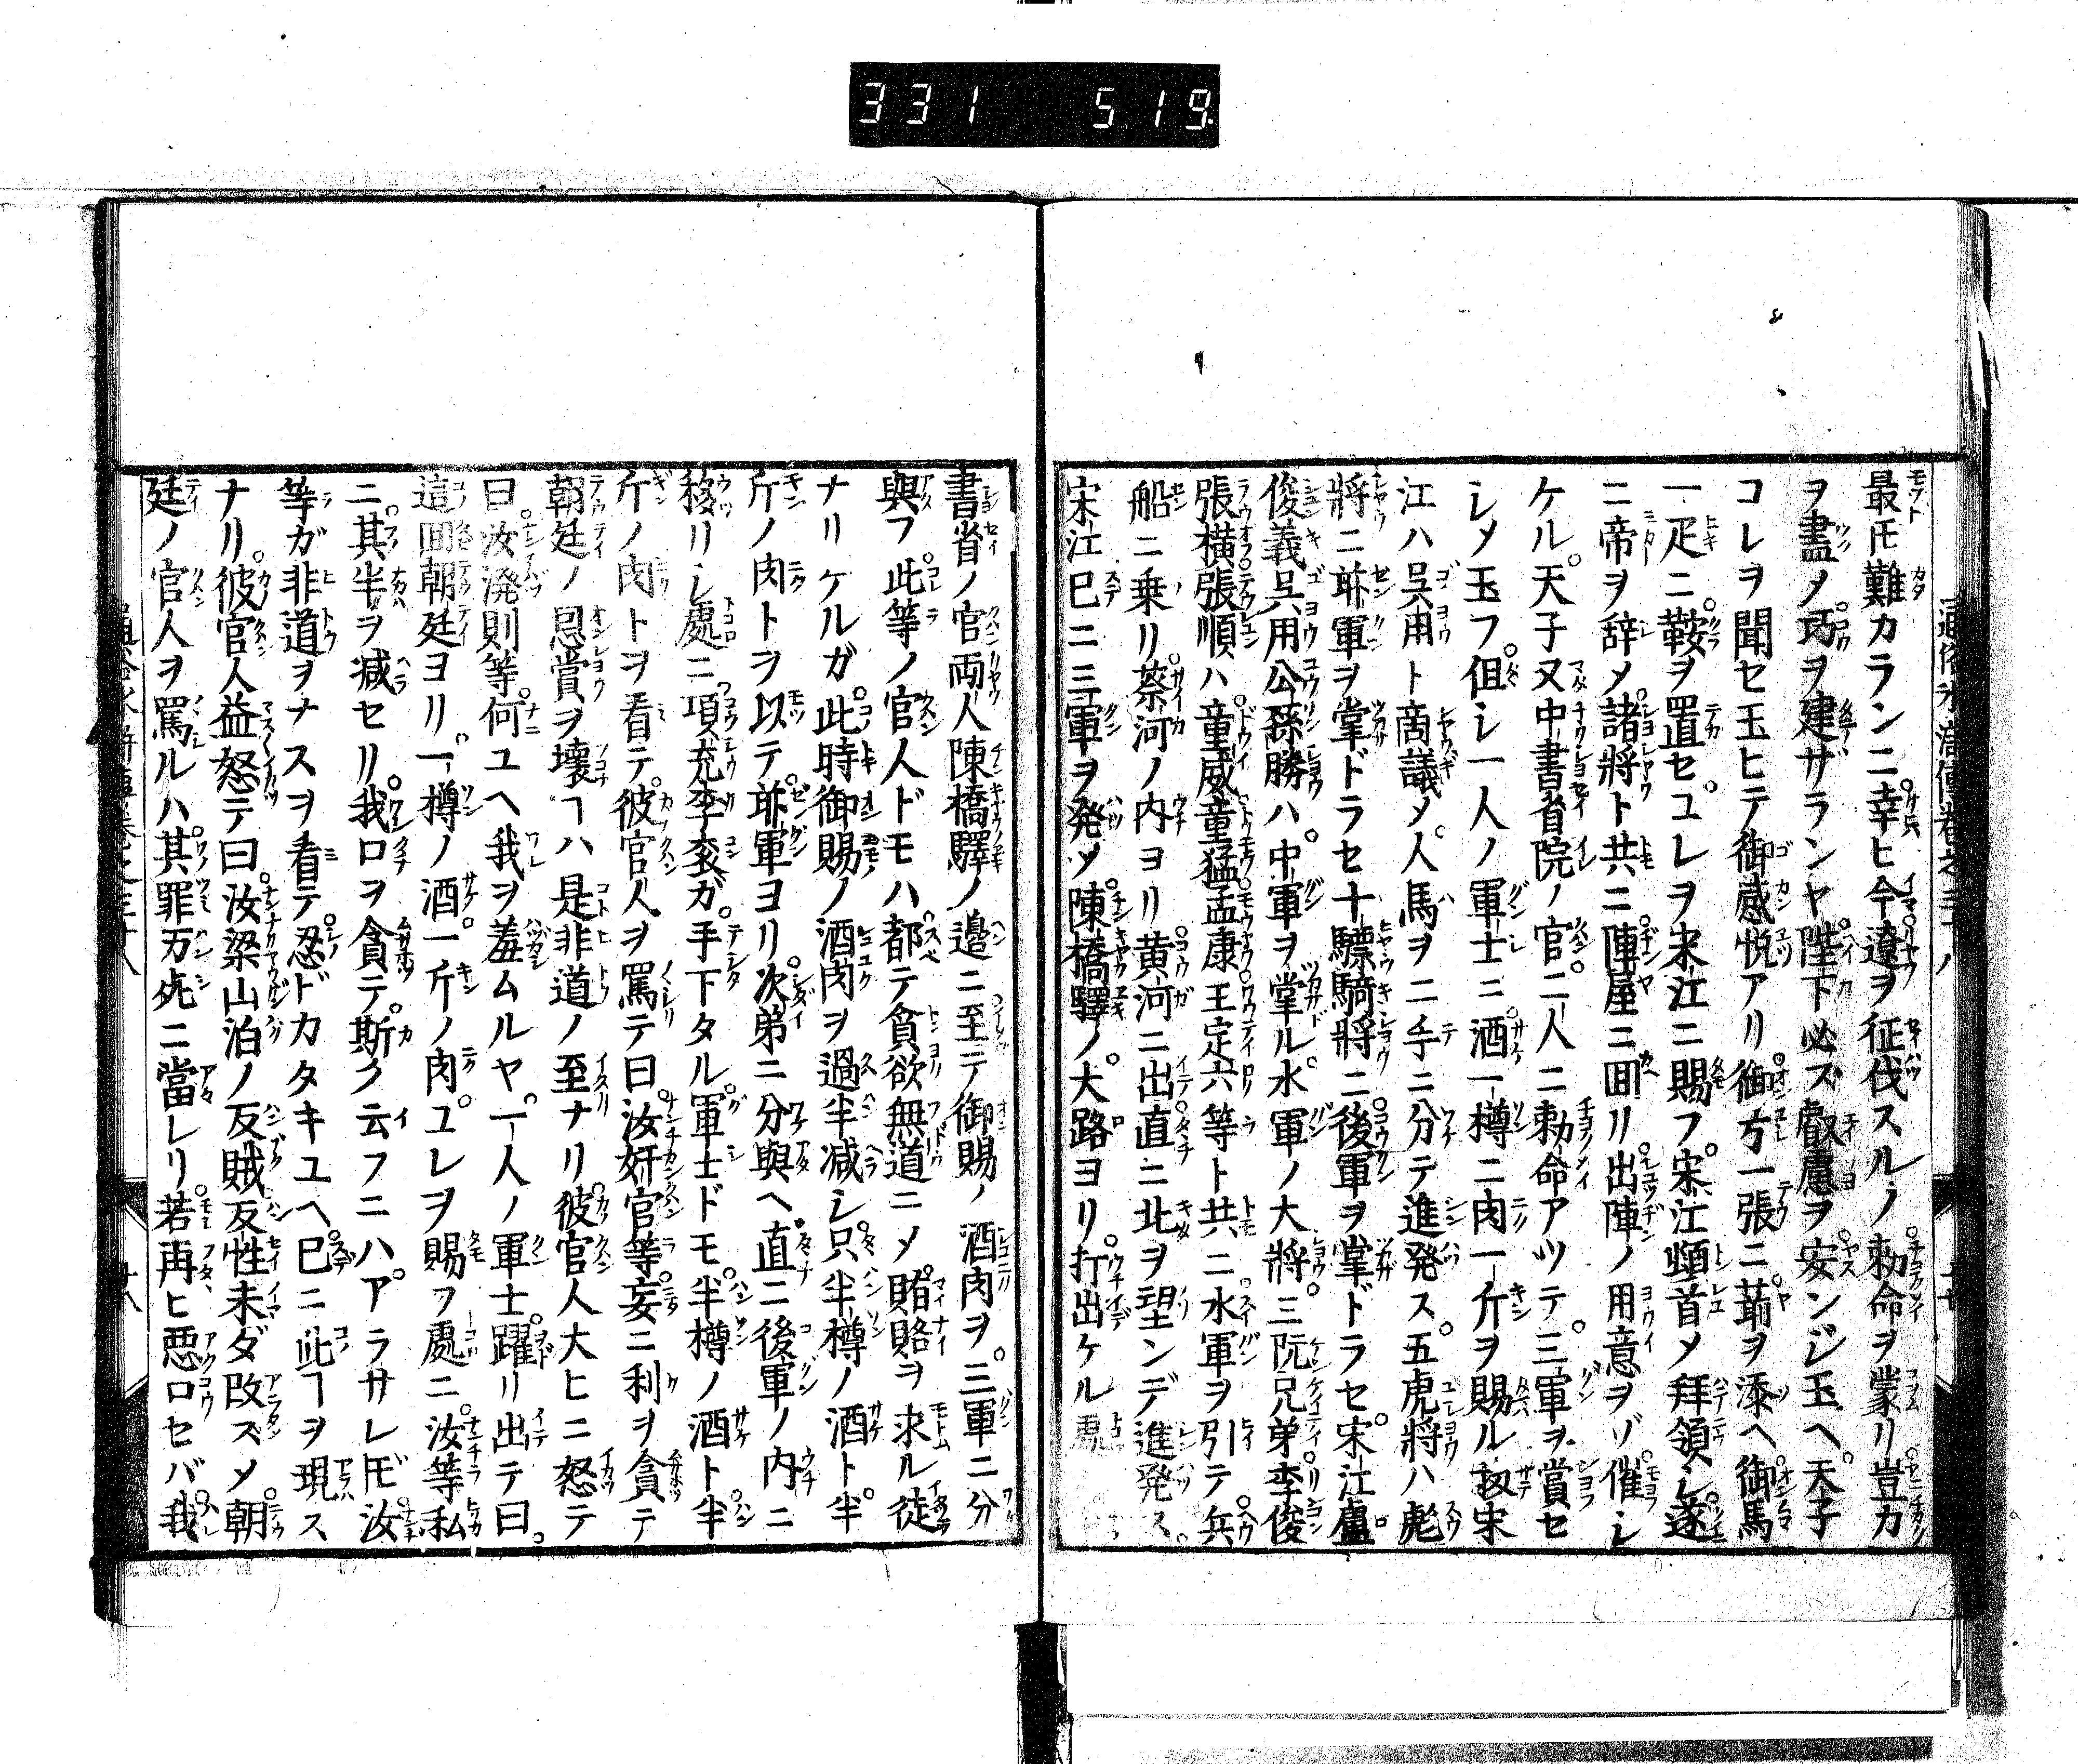 331 519
最𪜈難カランニ幸ヒ今遼ヲ征伐スルノ勅命ヲ蒙リ豈力
ヲ盡メ功ヲ建ザランヤ陛下必ズ叡慮ヲ安ンジ玉ヘ天子
コレヲ聞セ玉ヒテ御感悦アリ御方一張ニ箭ヲ添ヘ御馬
一疋ニ鞍ヲ置セコレヲ宋江ニ賜フ宋江頓首メ拜領シ遂
ニ帝ヲ辞メ諸將ト共ニ陣屋ニ囬リ出陣ノ用意ヲゾ催シ
ケル天子又中書省院ノ官二人ニ勅命アツテ三軍ヲ賞セ
シメ玉フ但シ一人ノ軍士ニ酒一樽ニ肉一斤ヲ賜ル扨宋
江ハ呉用ト商議メ人馬ヲ二手ニ分テ進発ス五虎將ハ彪
將ニ前軍ヲ掌ドラセ十驃騎將ニ後軍ヲ掌ドラセ宋江盧
俊義呉用公孫勝ハ中軍ヲ掌ル水軍ノ大將三阮兄弟李俊
張横張順ハ童威童猛孟康王定六等ト共ニ水軍ヲ引テ兵
船ニ乗リ蔡河ノ内ヨリ黄河ニ出直ニ北ヲ望ンデ進発ス
宋江已ニ三軍ヲ発メ陳橋驛ノ大路ヨリ打出ケル處
書省ノ官両人陳橋驛ノ邉ニ至テ御賜ノ酒肉ヲ三軍ニ分
與フ此等ノ官人ドモハ都テ貪欲無道ニメ賄賂ヲ求ル徒
ナリケルガ此時御賜ノ酒肉ヲ過半減シ只半樽ノ酒ト半
斤ノ肉トヲ以テ前軍ヨリ次第ニ分與ヘ直ニ後軍ノ内ニ
移リシ處ニ項充李衮ガ手下タル軍士ドモ半樽ノ酒ト半
斤ノ肉トヲ看テ彼官人ヲ罵テ曰汝奸官等妄ニ利ヲ貪テ
朝廷ノ恩賞ヲ壞ヿハ是非道ノ至ナリ彼官人大ヒニ怒テ
曰汝溌則等何ユヘ我ヲ羞ムルヤ一人ノ軍士躍リ出テ曰
這囬朝廷ヨリ一樽ノ酒一斤ノ肉コレヲ賜フ處ニ汝等私
ニ其半ヲ减セリ我口ヲ貪テ斯ク云フニハアラサレ𪜈汝
等ガ非道ヲナスヲ看テ忍ドカタキユヘ已ニ此ヿヲ現ス
ナリ彼官人益怒テ曰汝梁山泊ノ反賊反性未ダ改ズメ朝
廷ノ官人ヲ罵ルハ其罪万死ニ當レリ若再ヒ悪口セバ我